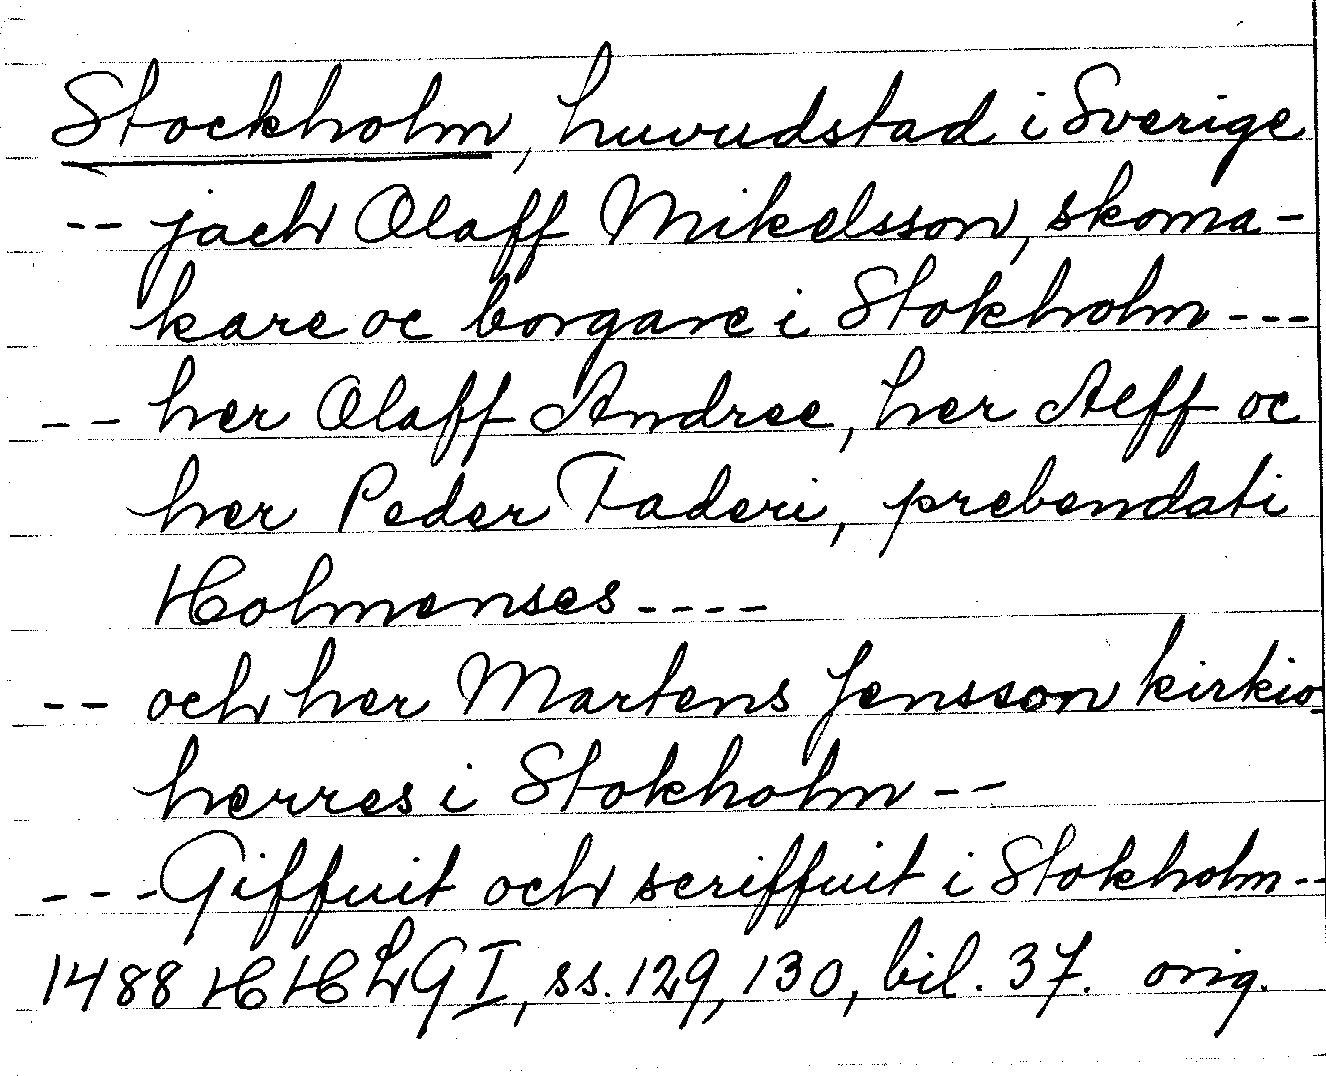 Stockholm, huvudstad i Sverige
-- jach Olaff Mikelsson, skoma-
kare oc borgare i Stokholm ---
-- her Olaff Andree, her Alff oc
her Peder Faderi, prebendati
Holmenses ----
-- och her Martens Jensson kirkio-
herres i Stokholm --
--- Giffuit och scriffuit i Stokholm --
1488 HHLG I, ss. 129, 130, bil. 37. orig.